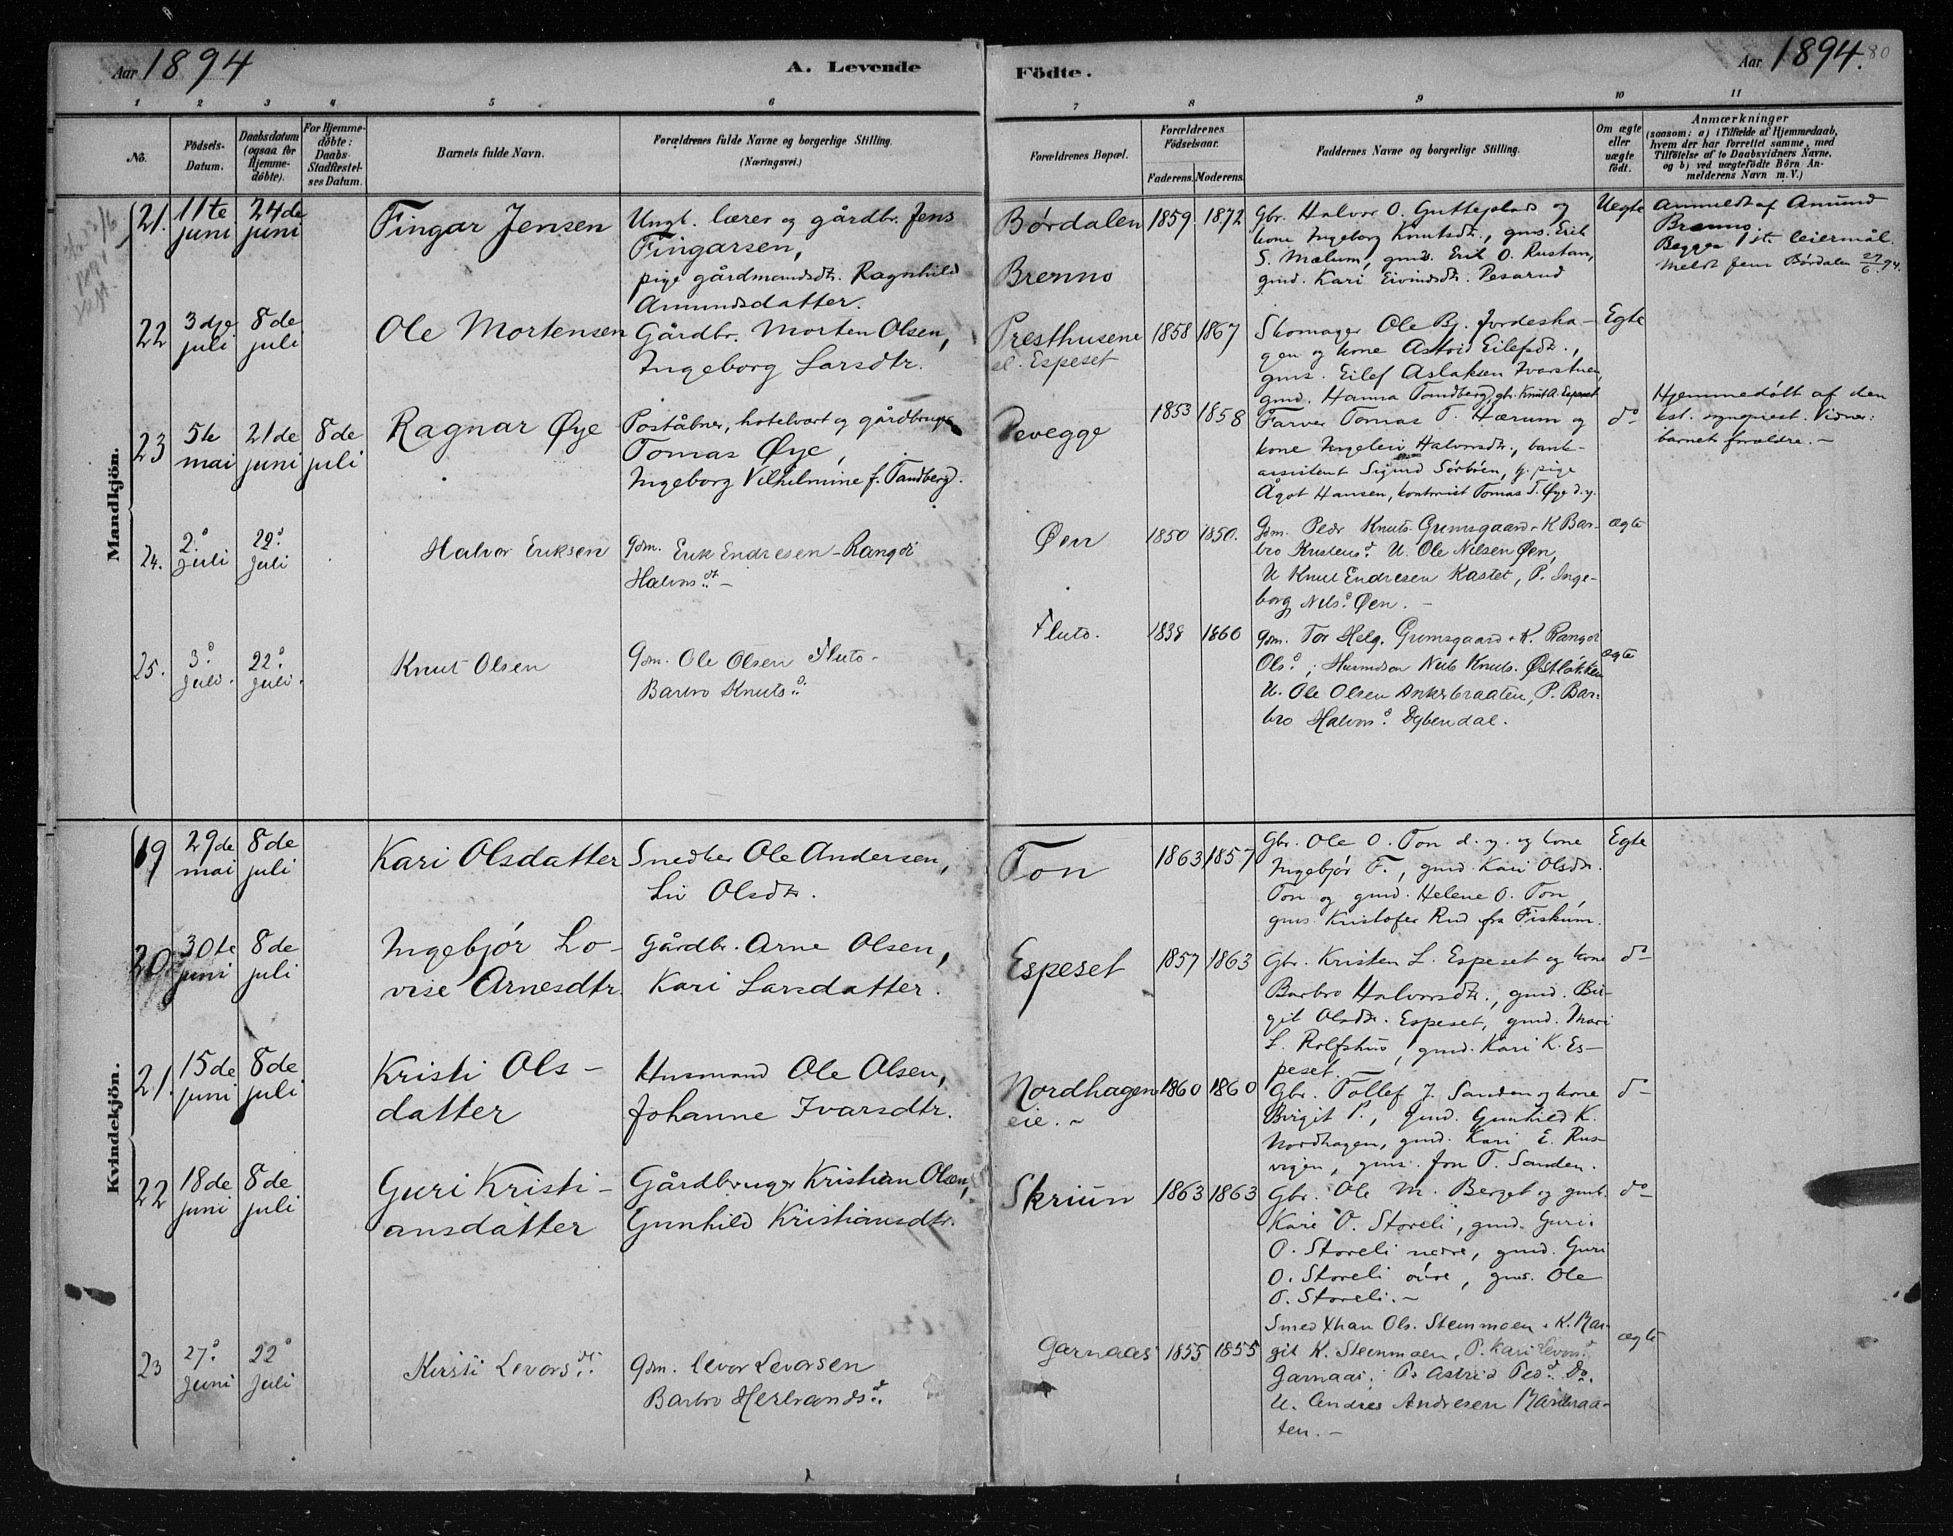 Aar 1894
A. Levende
Födte.
Aar 1894.
80
1 2 3 4 5 6 7 8 9 10 11
No.
Födsels-
Datum.
Daabsdatum
(ogsaa for
Hjemme-
döbte).
For Hjemme-
döbte:
Daabs-
Stadfæstel-
ses Datum.
Barnets fulde Navn.
Forældrenes fulde Navne og borgerlige Stilling.
(Næringsvei.)
Forældrenes Bopæl.
Forældrenes
Födselsaar.
Faderens. Moderens.
Faddernes Navne og borgerlige Stilling.
Om ægte
eller
uægte
födt.
Anmærkninger
(saasom: a) i Tilfælde af Hjemmedaab,
hvem der har forrettet samme, med
Tilföielse af to Daabsvidners Navne,
og b) ved uægtefödte Börn An-
melderens Navn m. V.)
Mandkjön.
21. 11te
juni
24de
juni
Fingar Jensen
Ungk. lærer og gårdbr. Jens
Fingarsen,
pige gårdmandsdtr. Ragnhild
Amundsdatter.
Børdalen
Brenno
1859. 1872
Gbr. Halvor O. og
kone Ingeborg Knutsdtr., gms. Erik
S. Mælum, gms. Erik O. Rustan,
gmd. Kari Eivindsdtr. Pesarud
Uegte
Anmeldt af Amund
Brenno.
Begges 1ste leiermål.
Meldt fem Børdalen 27/6 94.
22 3dje
juli
8de
juli
Ole Mortensen
Gårdbr. Morten Olsen,
Ingeborg Larsdtr.
Presthusene
el. Espeset
1858 1867
Skomager Ole Bj. Jordeska-
gen og kone Astrid Eilefsdtr.,
gms. Eilef Aslaksen Ivarstuen,
gmd. Hanna Tandberg, gbr. Knut A. Espeset
Egte
23 5te
mai
21de
juni
8de
juli
Ragnar Øye
Poståbner, hotelvært og gårdbruger
Tomas Øye,
Ingeborg Vilhelmine f. Tandberg.
Pevegge
1853 1858
Farver Tomas T. Hærum og
kone Ingeleiv Halvorsdtr., bank-
assistent Sigurd Sørbøen, pige
Ågot Hansen, kontorist Tomas T. Øye d. y.
do
Hjemmedøbt af den
kst. sogneprest. Vidner:
barnets forældre. –
24. 2.
Juli
22.
Juli
Halvor Eriksen
Gdm. Erik Endresen – Rangdi
Halvors dt. –
Øen
1850 1850.
Gdm. Peder Knuts. Grimsgaard + K. Bar-
bro Kristens d. U. Ole Nilsen Øen,
U Knut Endresen Kastet, P. Inge-
borg Nils d. Øen. –
ægte
25. 3.
Juli.
22.
Juli.
Knut Olsen
Gdm. Ole Olsen Fluto –
Barbro Knuts d.
Fluto.
1838 1860
Gdm. Tor Helg. Grimsgaard + K. Rangdi
Ols d.; Husmdsøn Nils Knuts. Østløkken
U. Ole Olsen Ankerbraaten, P. Bar-
bro Halvors d. Dybendal.
ægte
Kvindekjön.
19 29de
mai
8de
juli
Kari Olsdatter
Snedker Ole Andersen,
Liv Olsdtr.
Ton
1863 1857
Gbr. Ole O. Ton d. y. og kone
Ingebjør F., gmd. Kari Olsdtr.
Ton og gmd. Helene O. Ton,
gms. Kristofer Rud fra Fiskum.
Egte
20 30te
juni
8de
juli
Ingebjør Lo-
vise Arnesdtr.
Gårdbr. Arne Olsen,
Kari Larsdatter.
Espeset
1857 1863
Gbr. Kristen L. Espeset og kone
Barbro Halvorsdtr., gmd. Bir-
git Olsdtr. Espeset, gmd. Mari
L. Rolfshus, gmd. Kari K. Es-
peset.
do
21. 15de
juni
8de
juli
Kristi Ols –
datter
Husmand Ole Olsen,
Johanne Ivarsdtr.
Nordhagen
eie. ~
1860 1860
Gbr. Tollef J. Sanden og kone
Birgit P., gmd. Gunhild K.
Nordhagen, gmd. Kari E. Rus-
vigen, gms. Jon T. Sanden.
do
22 18de
juni
8de
juli
Guri Kristi –
ansdatter
Gårdbruger Kristian Olsen,
Gunhild Kristiansdtr.
Skriun
1863 1863
Gbr. Ole M. Berget og gmk.
Kari O. Storeli, gmd. Guri
O. Storeli nedre, gmd. Guri
O. Storeli øvre, gms. Ole
O. Storeli. –
do
23 27.
Juni
22
Juli
Kirsti Levors dt.
Gdm. Levor Levorsen
Barbro Herbrands d.
Garnaas
1855 1855
Smed Johan Ols. Steinmoen + K. Mar-
git K. Steinmoen, P. Kari Levors d.
Garnaas, P. Astrid Ped d. Do.
U. Andres Andresen Braa-
ten. –
ægte